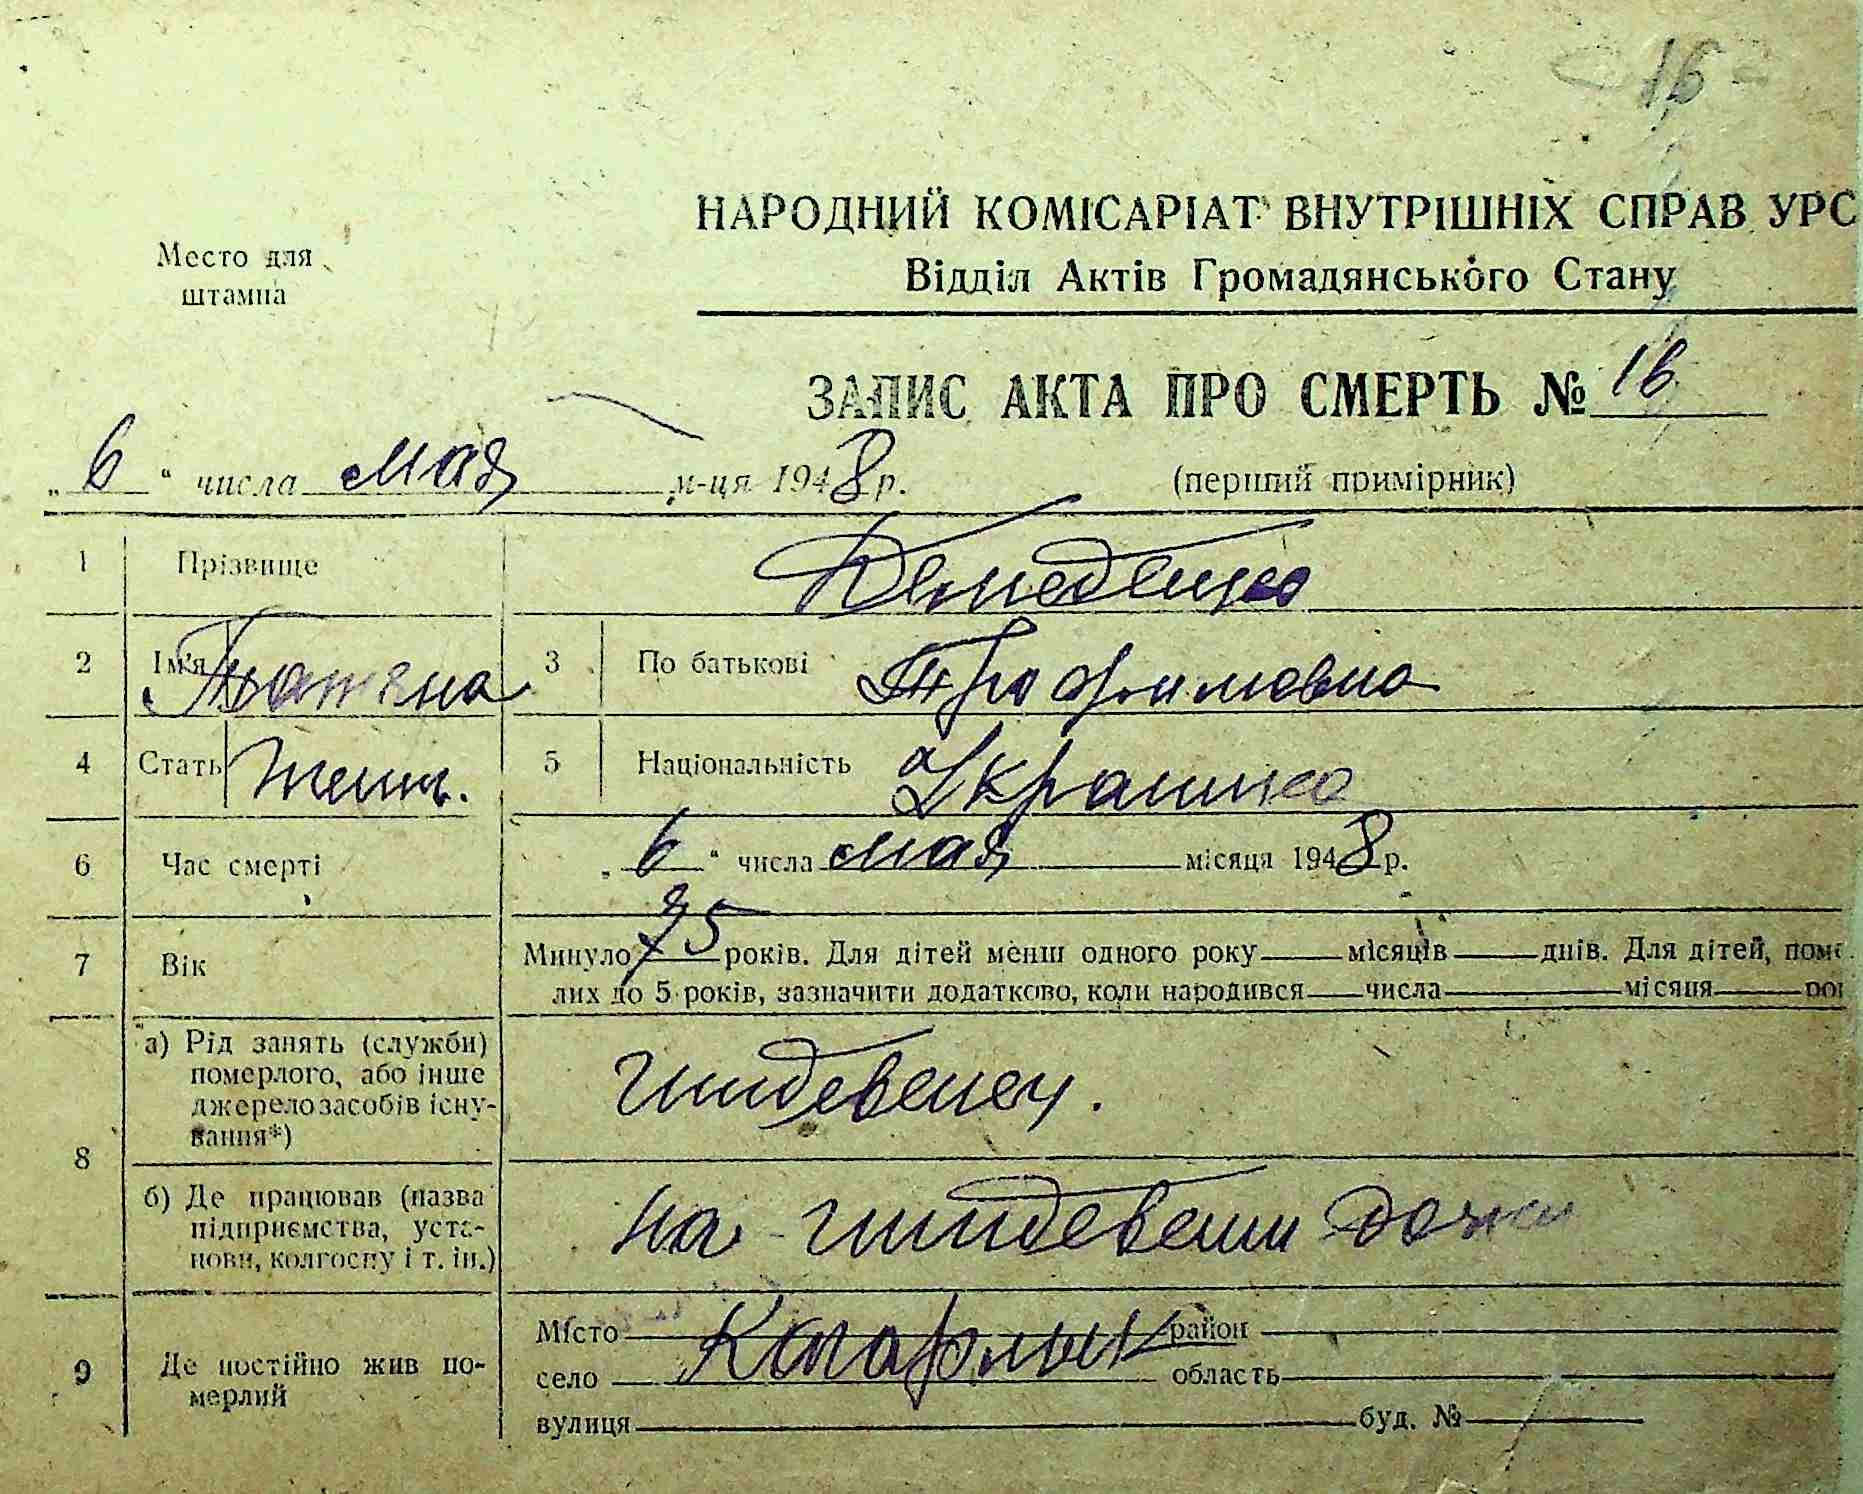 16
НАРОДНИЙ КОМІСАРІАТ ВНУТРІШНІХ СПРАВ УРС
Место для
штампа
Відділ Актів Громадянського Стану
ЗАПИС АКТА ПРО СМЕРТЬ № 16
„6“ числа мая м-ця 1948 р. (перший примірник)
1 Прізвище
2 Ім'я Татяна 3 По батькові Трофимовна
4 Стать женск. 5 Національність Украинка
6 Час смерті „6“ числа мая місяця 1948 р.
7 Вік Минуло 75 років. Для дітей менш одного року місяців днів. Для дітей, поме
лих до 5 років, зазначити додатково, коли народився числа місяця рок
8 а) Рід занять (служби) померлого, або інше джерело засобів існування*) иждевенец.
б) Де працював (назва підприємства, установи, колгоспу і т. ін.) на иждевении дочки
9 Де постійно жив померлий Місто Кагарлык район
село область
вулиця буд. №